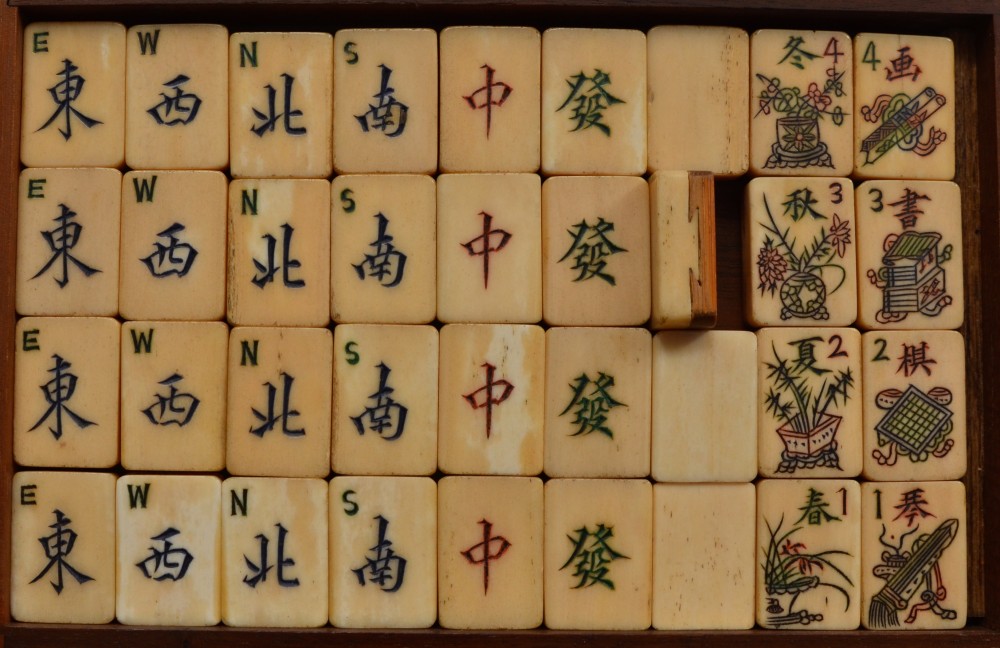 E 東 W 西 N 北 S 南 中 發 冬 4 4 画
E 東 W 西 N 北 S 南 中 發 秋 3 3 書
E 東 W 西 N 北 S 南 中 發 夏 2 2 棋
E 東 W 西 N 北 S 南 中 發 春 1 1 琴